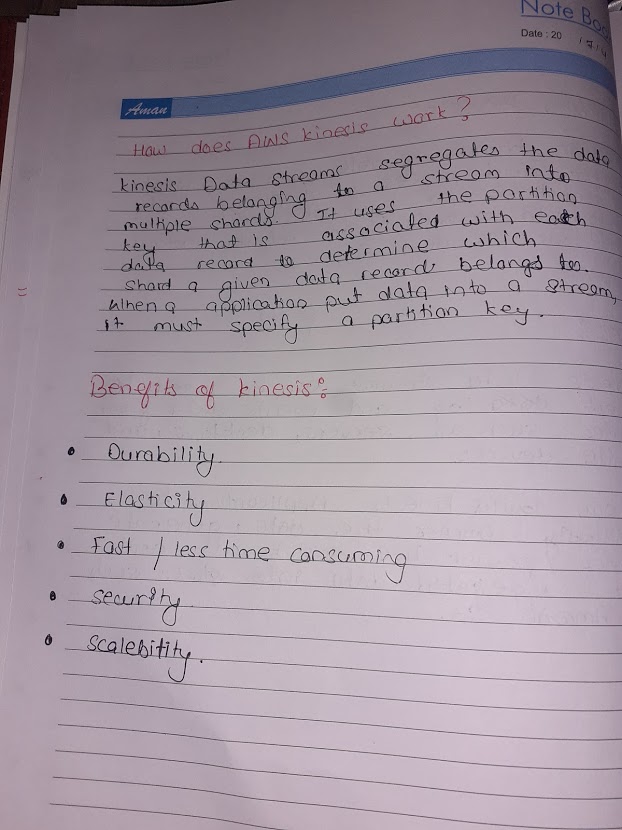 Note Boo
Date : 20
Aman
How does AWS kinesis work?
kinesis Data streams segregates the data
records belanging to a stream into
multiple shards. It uses the partition
key that is associated with each
data record to determine which
shard a given data record belangs to.
When a application put data into a stream,
it must specify a partition key.
Benefits of kinesis:
• Durability
• Elasticity
• Fast / less time consuming
• security
• scalebitity.